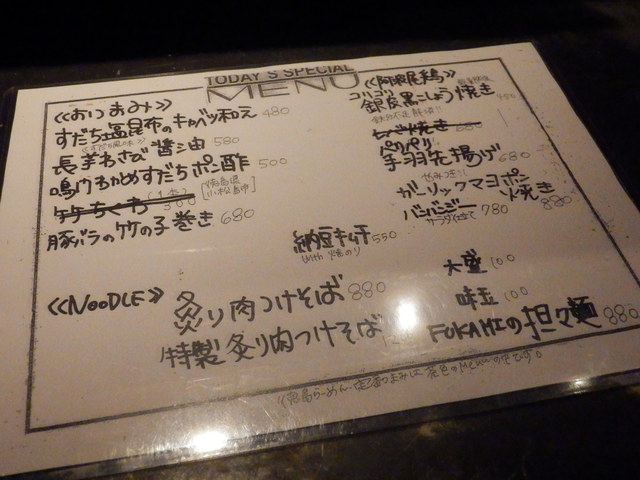 TODAY'S SPECIAL
MENU
≪おつまみ≫
すだち塩昆布のキャベツ和え 480
長芋わさび醤油 580
鳴門わかめすだちポン酢 500
竹ちくわ
豚バラの竹の子巻き 680
≪阿波尾鶏≫
コリコリ
銀皮黒こしょう焼き
パリパリ
手羽先揚げ 680
ガーリックマヨポン
焼き 880
バンバンジー 780
サラダ仕立て
納豆キムチ 550
with 焼のり
≪NOODLE≫
炙り肉つけそば 880
特製炙り肉つけそば
大盛 100
味玉 100
FUKAMIの担々麺 880